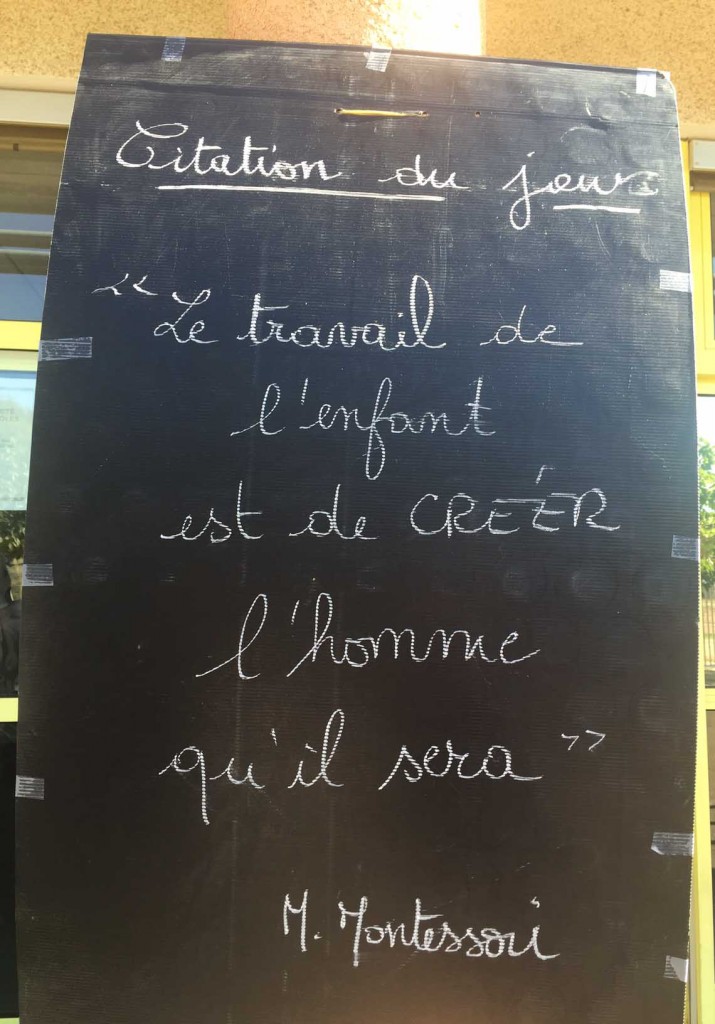 Citation du jour
"Le travail de
l'enfant
est de CRÉÉR
l'homme
qu'il sera"
M. Montessori